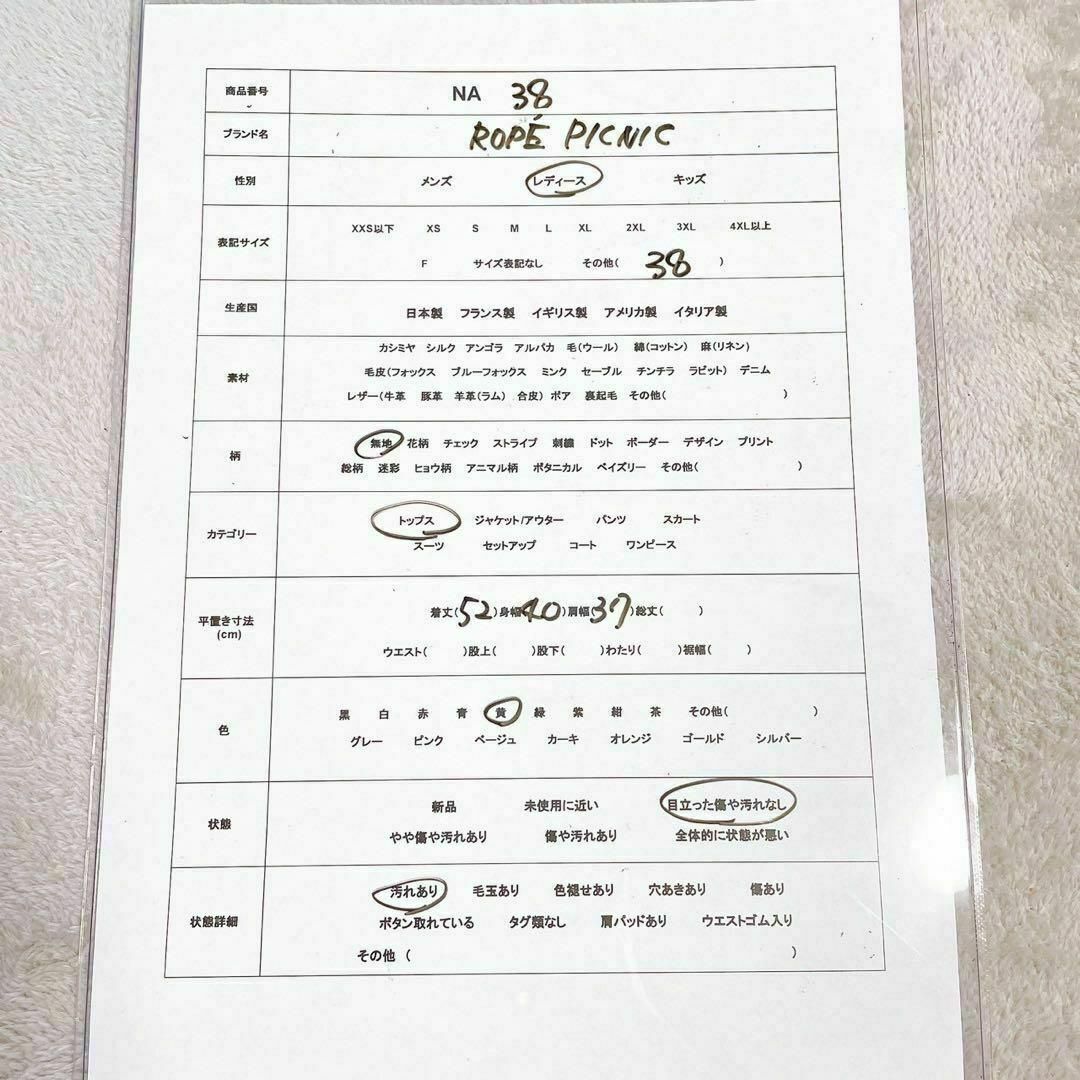 商品番号 NA 38
ブランド名 ROPÉ PICNIC
性別 メンズ レディース キッズ
表記サイズ XXS以下 XS S M L XL 2XL 3XL 4XL以上
F サイズ表記なし その他( 38 )
生産国 日本製 フランス製 イギリス製 アメリカ製 イタリア製
素材 カシミヤ シルク アンゴラ アルパカ 毛(ウール) 綿(コットン) 麻(リネン)
毛皮(フォックス ブルーフォックス ミンク セーブル チンチラ ラビット) デニム
レザー(牛革 豚革 羊革(ラム) 合皮) ボア 裏起毛 その他( )
柄 無地 花柄 チェック ストライプ 刺繍 ドット ボーダー デザイン プリント
総柄 迷彩 ヒョウ柄 アニマル柄 ボタニカル ペイズリー その他( )
カテゴリー トップス ジャケット/アウター パンツ スカート
スーツ セットアップ コート ワンピース
平置き寸法 (cm) 着丈(52)身幅(40)肩幅(37)総丈( )
ウエスト( )股上( )股下( )わたり( )裾幅( )
色 黒 白 赤 青 黄 緑 紫 紺 茶 その他( )
グレー ピンク ベージュ カーキ オレンジ ゴールド シルバー
状態 新品 未使用に近い 目立った傷や汚れなし
やや傷や汚れあり 傷や汚れあり 全体的に状態が悪い
状態詳細 汚れあり 毛玉あり 色褪せあり 穴あきあり 傷あり
ボタン取れている タグ類なし 肩パッドあり ウエストゴム入り
その他 ( )